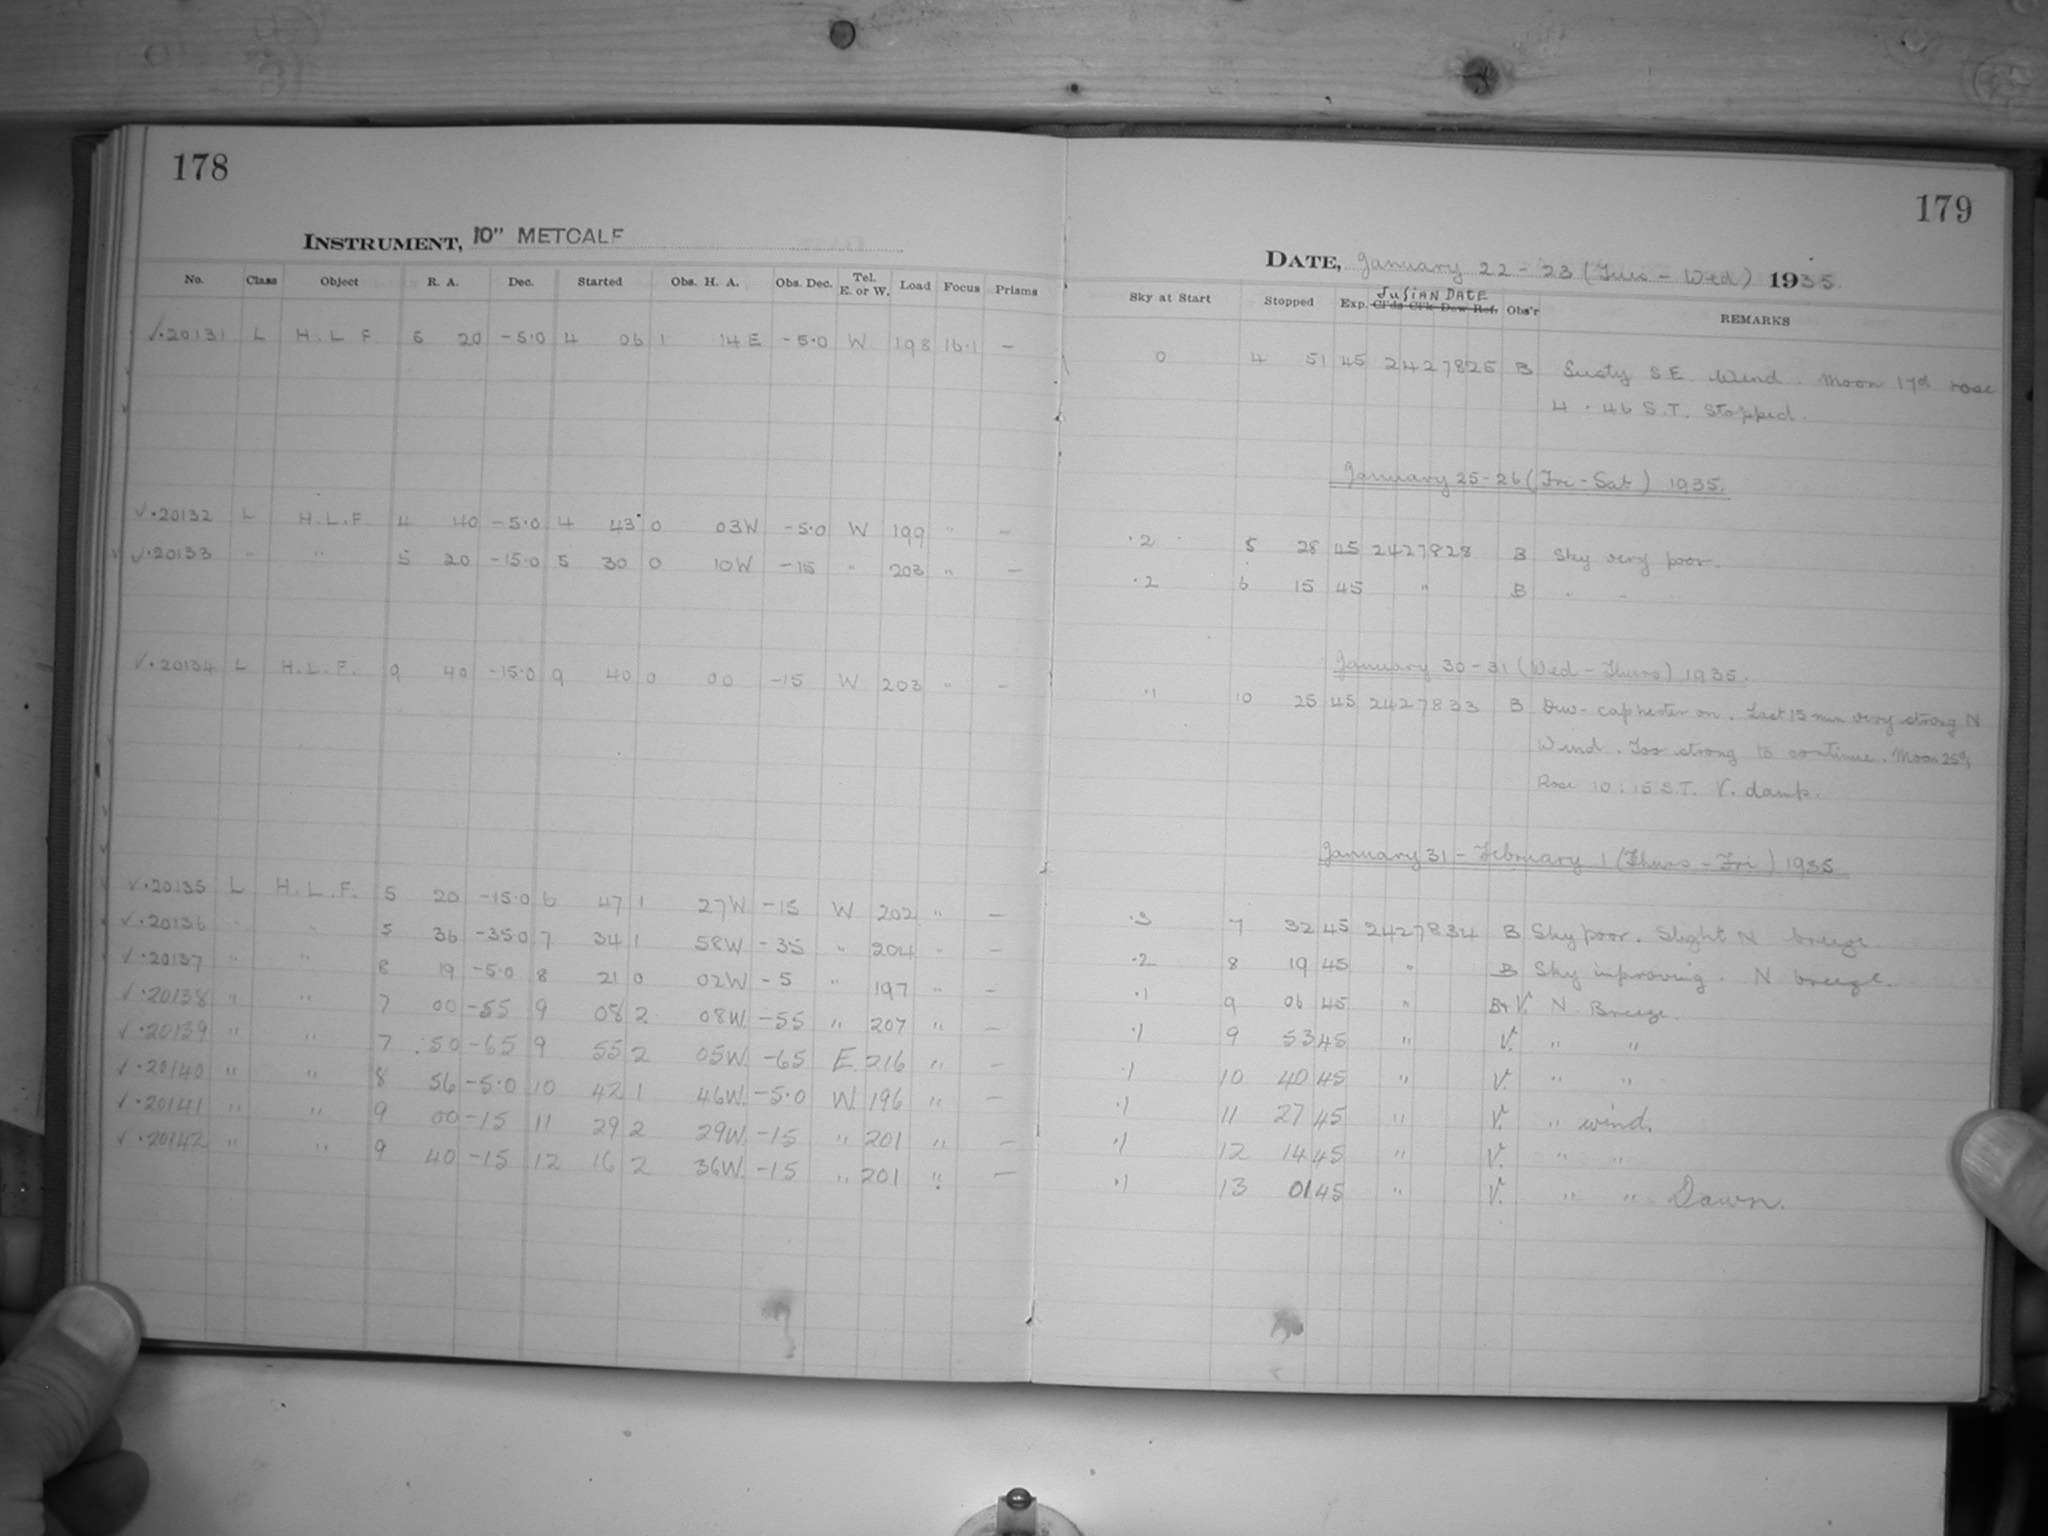 178
INSTRUMENT, 10" METCALF
No. Class Object R. A. Dec. Started Obs. H. A. Obs. Dec. Tel. E. or W. Load Focus Prisms
√.20131 L H.L.F 5 20 -5.0 4 06 1 14E -5.0 W 198 16.1 —
√.20132 L H.L.F. 4 40 -5.0 4 43 0 03W -5.0 W 199 " —
√.20133 " " 5 20 -15.0 5 30 0 10W -15 " 203 " —
√.20134 L H.L.F. 9 40 -15.0 9 40 0 00 -15 W 203 " —
√.20135 L H.L.F. 5 20 -15.0 6 47 1 27W -15 W 202 " —
√.20136 " " 5 36 -35.0 7 34 1 58W -35 " 204 " —
√.20137 " " 8 19 -5.0 8 21 0 02W -5 " 197 " —
√.20138 " " 7 00 -55 9 08 2 08W. -55 " 207 " —
√.20139 " " 7 50 -65 9 55 2 05W. -65 E. 216 " —
√.20140 " " 8 56 -5.0 10 42 1 46W. -5.0 W. 196 " —
√.20141 " " 9 00 -15 11 29 2 29W. -15 " 201 " —
√.20142 " " 9 40 -15 12 16 2 36W. -15 " 201 " —
179
DATE, January 22-23 (Tues-Wed) 1935.
Sky at Start Stopped Exp. JULIAN DATE Obs'r REMARKS
0 4 51 45 2427825 B Gusty S E. Wind. Moon 17d rose
4.46 S.T. Stopped.
January 25-26 (Fri-Sat) 1935.
.2 5 28 45 2427828 B Sky very poor.
.2 6 15 45 " B " "
January 30-31 (Wed-Thurs) 1935.
.1 10 25 45 2427833 B Dew-cap heater on. Last 15 min very strong N
Wind. Too strong to continue. Moon 25d,
Rose 10:15 S.T. V. damp.
January 31 - February 1 (Thurs-Fri) 1935
.3 7 32 45 2427834 B Sky poor. Slight N breeze.
.2 8 19 45 " B Sky improving. N breeze.
.1 9 06 45 " B+V. N. Breeze.
.1 9 53 45 " V. " "
.1 10 40 45 " V. " "
.1 11 27 45 " V. " wind.
.1 12 14 45 " V. " "
.1 13 01 45 " V. " " Dawn.